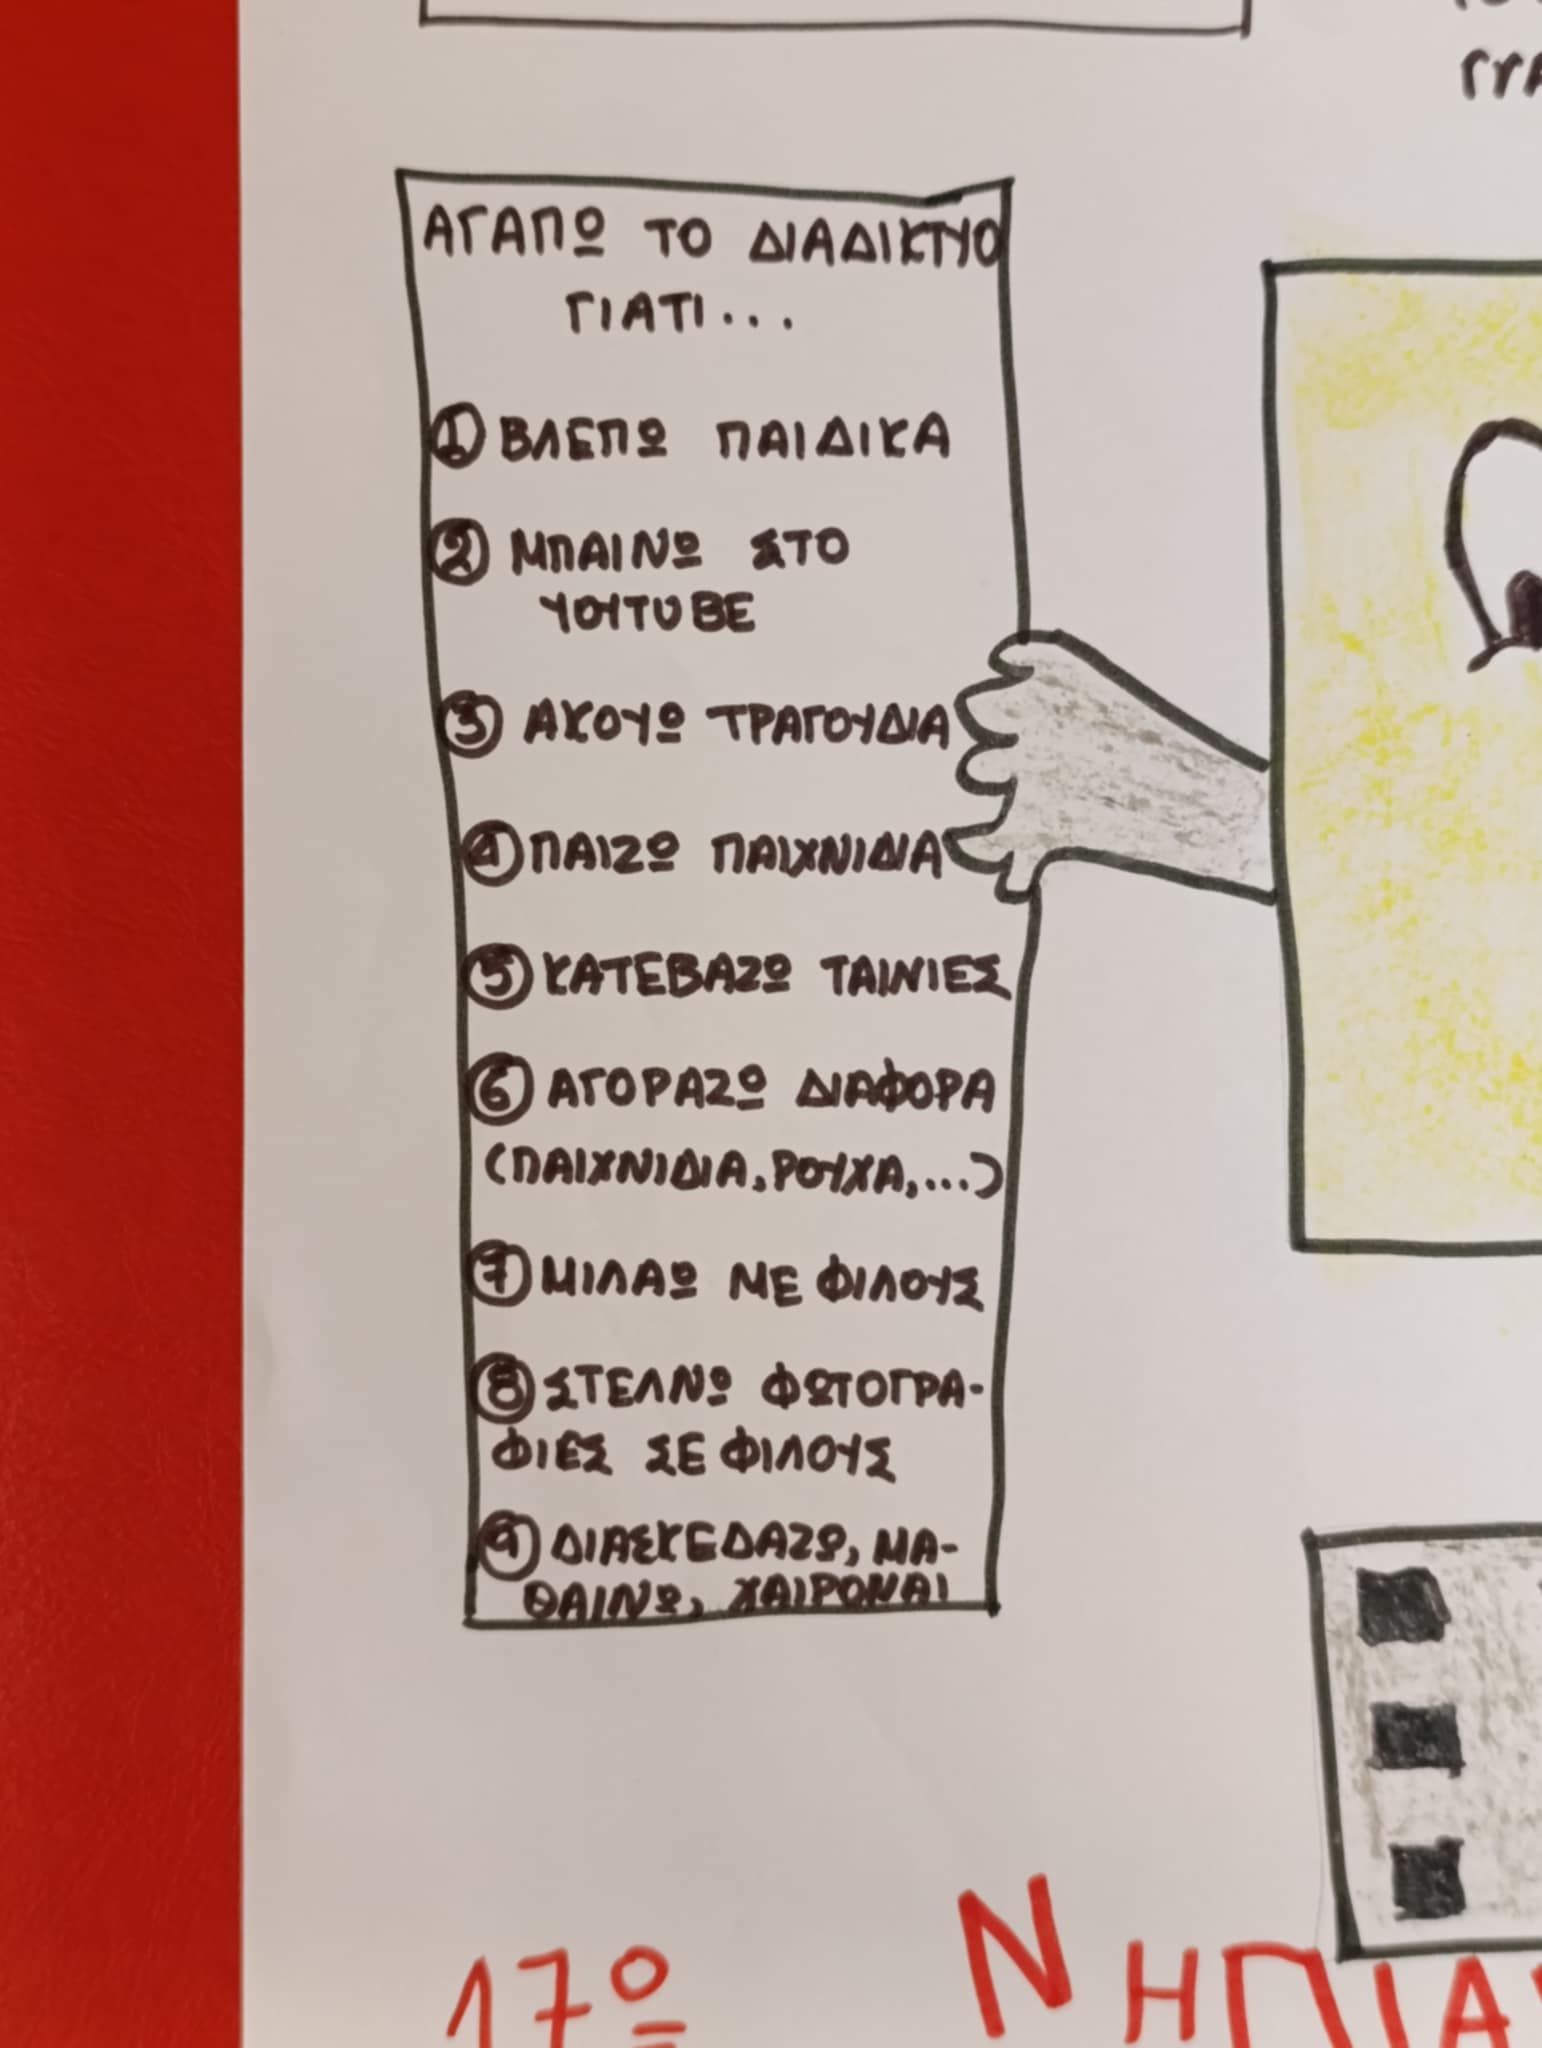 ΑΓΑΠΩ ΤΟ ΔΙΑΔΙΚΤΥΟ
ΓΙΑΤΙ...
1 ΒΛΕΠΩ ΠΑΙΔΙΚΑ
2 ΜΠΑΙΝΩ ΣΤΟ
YOUTUBE
3 ΑΚΟΥΩ ΤΡΑΓΟΥΔΙΑ
4 ΠΑΙΖΩ ΠΑΙΧΝΙΔΙΑ
5 ΚΑΤΕΒΑΖΩ ΤΑΙΝΙΕΣ
6 ΑΓΟΡΑΖΩ ΔΙΑΦΟΡΑ
(ΠΑΙΧΝΙΔΙΑ, ΡΟΥΧΑ,...)
7 ΜΙΛΑΩ ΜΕ ΦΙΛΟΥΣ
8 ΣΤΕΛΝΩ ΦΩΤΟΓΡΑ-
ΦΙΕΣ ΣΕ ΦΙΛΟΥΣ
9 ΔΙΑΣΚΕΔΑΖΩ, ΜΑ-
ΘΑΙΝΩ, ΧΑΙΡΟΜΑΙ
17º